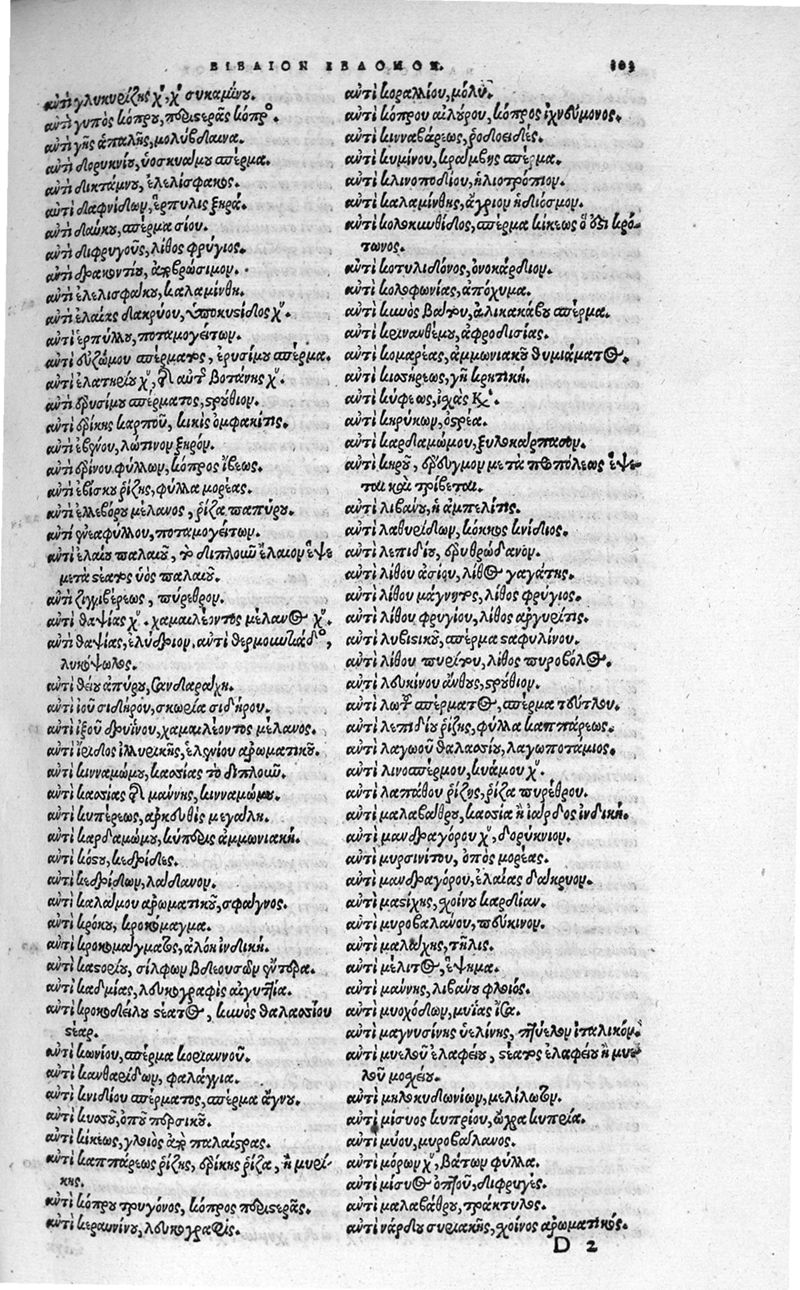 ΒΙΒΛΙΟΝ ΕΒΔΟΜΟΝ. 103
ἀντὶ γλυκυρίζης χυ, χυ συκαμίνου.
ἀντὶ γυπὸς κόπρου, περιστερᾶς κόπρος.
ἀντὶ γῆς ἁπαλῆς, μολύβδαινα.
ἀντὶ δορυκνίου, ὑοσκυάμου σπέρμα.
ἀντὶ δικτάμνου, ἐλελίσφακος.
ἀντὶ δαφνίδων, ἕρπυλις ξηρά.
ἀντὶ δαύκου, σπέρμα σίου.
ἀντὶ διφρυγοῦς, λίθος φρύγιος.
ἀντὶ δρακοντίου,
ἀντὶ ἐλελισφάκου, καλαμίνθη.
ἀντὶ ἐλαίας δακρύου, ὑποκυστίδος χυ.
ἀντὶ ἑρπύλλου, ποταμογείτων.
ἀντὶ εὐζώμου σπέρματος, ἐρυσίμου σπέρμα.
ἀντὶ ἐλατηρίου χυ, βοτάνης χυ.
ἀντὶ ἐρυσίμου σπέρματος, στρούθιον.
ἀντὶ ἐρίκης καρποῦ, κικὶς ὀμφακίτις.
ἀντὶ ἐβένου, λώτινον ξηρόν.
ἀντὶ φύλλων, κόπρος ἴβεως.
ἀντὶ ἐβίσκου ῥίζης, φύλλα μορέας.
ἀντὶ ἐλλεβόρου μέλανος, ῥίζα παπύρου.
ἀντὶ ποταμογείτων.
ἀντὶ ἐλαίου παλαιοῦ, τὸ διπλοῦν ἔλαιον ἕψε
μετὰ στέατος ὑὸς παλαιοῦ.
ἀντὶ ζιγγιβέρεως, πύρεθρον.
ἀντὶ θαψίας χυ. χαμαιλέοντος μέλανος χυ.
ἀντὶ θαψίας, ἐλύδριον.
λυκόψωλος.
ἀντὶ θείου ἀπύρου, σανδαράχη.
ἀντὶ ἰοῦ σιδήρου, σκωρία σιδήρου.
ἀντὶ ἰξοῦ δρυΐνου, χαμαιλέοντος μέλανος.
ἀντὶ ἴριδος ἰλλυρικῆς, ἑλενίου ἀρωματικοῦ.
ἀντὶ κινναμώμου, κασσίας τὸ διπλοῦν.
ἀντὶ κασσίας ἢ μάννης, κινναμώμου.
ἀντὶ κυπέρεως, ἀρκευθὶς μεγάλη.
ἀντὶ καρδαμώμου, κύπερις ἀμμωνιακή.
ἀντὶ κόστου, κεδρίδες.
ἀντὶ κεδρίδων, λάδανον.
ἀντὶ καλάμου ἀρωματικοῦ, σφάγνος.
ἀντὶ κρόκου, κροκόμαγμα.
ἀντὶ κροκομάγματος, ἀλόη ἰνδική.
ἀντὶ καστορίου, σίλφων βδεουσῶν ἔντερα.
ἀντὶ καδμίας, λευκογραφὶς αἰγυπτία.
ἀντὶ κροκοδείλου στέατος, κυνὸς θαλασσίου
στέαρ.
ἀντὶ κωνίου, σπέρμα κοριάννου.
ἀντὶ κανθαρίδων, φαλάγγια.
ἀντὶ κνιδίου σπέρματος, σπέρμα ἄγνου.
ἀντὶ ὀποῦ περσικοῦ.
ἀντὶ κίκεως, γλοιὸς ἀπὸ παλαίστρας.
ἀντὶ καππάρεως ῥίζης, ἐρίκης ῥίζα, ἢ μυρί-
κης.
ἀντὶ κόπρου τρυγόνος, κόπρος περιστερᾶς.
ἀντὶ κεραυνίου, λευκογραφίς.
ἀντὶ κοραλλίου, μόλυ.
ἀντὶ κόπρου αἰλούρου, κόπρος ἰχνεύμονος.
ἀντὶ κινναβάρεως, ῥοδοειδές.
ἀντὶ κυμίνου, κράμβης σπέρμα.
ἀντὶ κλινοποδίου, ἡλιοτρόπιον.
ἀντὶ καλαμίνθης, ἄγριον ἡδιόσμον.
ἀντὶ κολοκυνθίδος, σπέρμα κίκεως ὅ ἐστι κρό-
τωνος.
ἀντὶ κοτυλιδόνος, ὀνοκάρδιον.
ἀντὶ κολοφωνίας, ἀπόχυμα.
ἀντὶ κυνὸς βάτου, ἁλικακάβου σπέρμα.
ἀντὶ κρινανθέμου, ἀφροδισίας.
ἀντὶ κομαρέας, ἀμμωνιακοῦ θυμιάματος.
ἀντὶ γῆ κρητική.
ἀντὶ κύφεως, ἰχὰς
ἀντὶ κηρύκων, ὄστρεα.
ἀντὶ καρδαμώμου, ξυλοκάρπασον.
ἀντὶ κηροῦ, μετὰ προπόλεως ἕψε-
ται καὶ τρίβεται.
ἀντὶ λιβάνου, ἡ ἀμπελῖτις.
ἀντὶ λαθυρίδων, κόκκος κνίδιος.
ἀντὶ λεπιδίου, ἐρυθρόδανον.
ἀντὶ λίθου ἀσίου, λίθος γαγάτης.
ἀντὶ λίθου μάγνητος, λίθος φρύγιος.
ἀντὶ λίθου φρυγίου, λίθος ἀργυρίτης.
ἀντὶ λυβιστικοῦ, σπέρμα σταφυλίνου.
ἀντὶ λίθου πυρίτου, λίθος πυροβόλος.
ἀντὶ λευκίνου ἄνθους, στρούθιον.
ἀντὶ λωτοῦ σπέρματος, σπέρμα τεύτλου.
ἀντὶ λεπιδίου ῥίζης, φύλλα καππάρεως.
ἀντὶ λαγωοῦ θαλασσίου, λαγωποτάμιος.
ἀντὶ λινοσπέρμου, κυάμου χυ.
ἀντὶ λαπάθου ῥίζης, ῥίζα πυρέθρου.
ἀντὶ μαλαβάθρου, κασσία ἢ νάρδος ἰνδική.
ἀντὶ μανδραγόρου χυ, δορύκνιον.
ἀντὶ μυρσινίτου, ὀπὸς μορέας.
ἀντὶ μανδραγόρου, ἐλαίας δάκρυον.
ἀντὶ μαστίχης, σχοίνου καρδίαν.
ἀντὶ μυροβαλάνου, πεύκινον.
ἀντὶ μαλάχης, τῆλις.
ἀντὶ μέλιτος, ἕψημα.
ἀντὶ μάννης, λιβάνου φλοιός.
ἀντὶ μυοχόδων, μυίας ἴσα.
ἀντὶ μαγνησίης ὑελίνης, ἰταλικόν.
ἀντὶ μυελοῦ ἐλαφείου, στέατος ἐλαφείου ἢ μυε-
λοῦ μοσχείου.
ἀντὶ μηλοκυδωνίων, μελίλωτον.
ἀντὶ μίσυος κυπρίου, ὤχρα κυπρία.
ἀντὶ μύου, μυροβάλανος.
ἀντὶ μόρων χυ, βάτων φύλλα.
ἀντὶ μίσυος ὀπτοῦ, διφρυγές.
ἀντὶ μαλαβάθρου, τράκτυλος.
ἀντὶ νάρδου συριακῆς, σχοίνος ἀρωματικός.
D 2